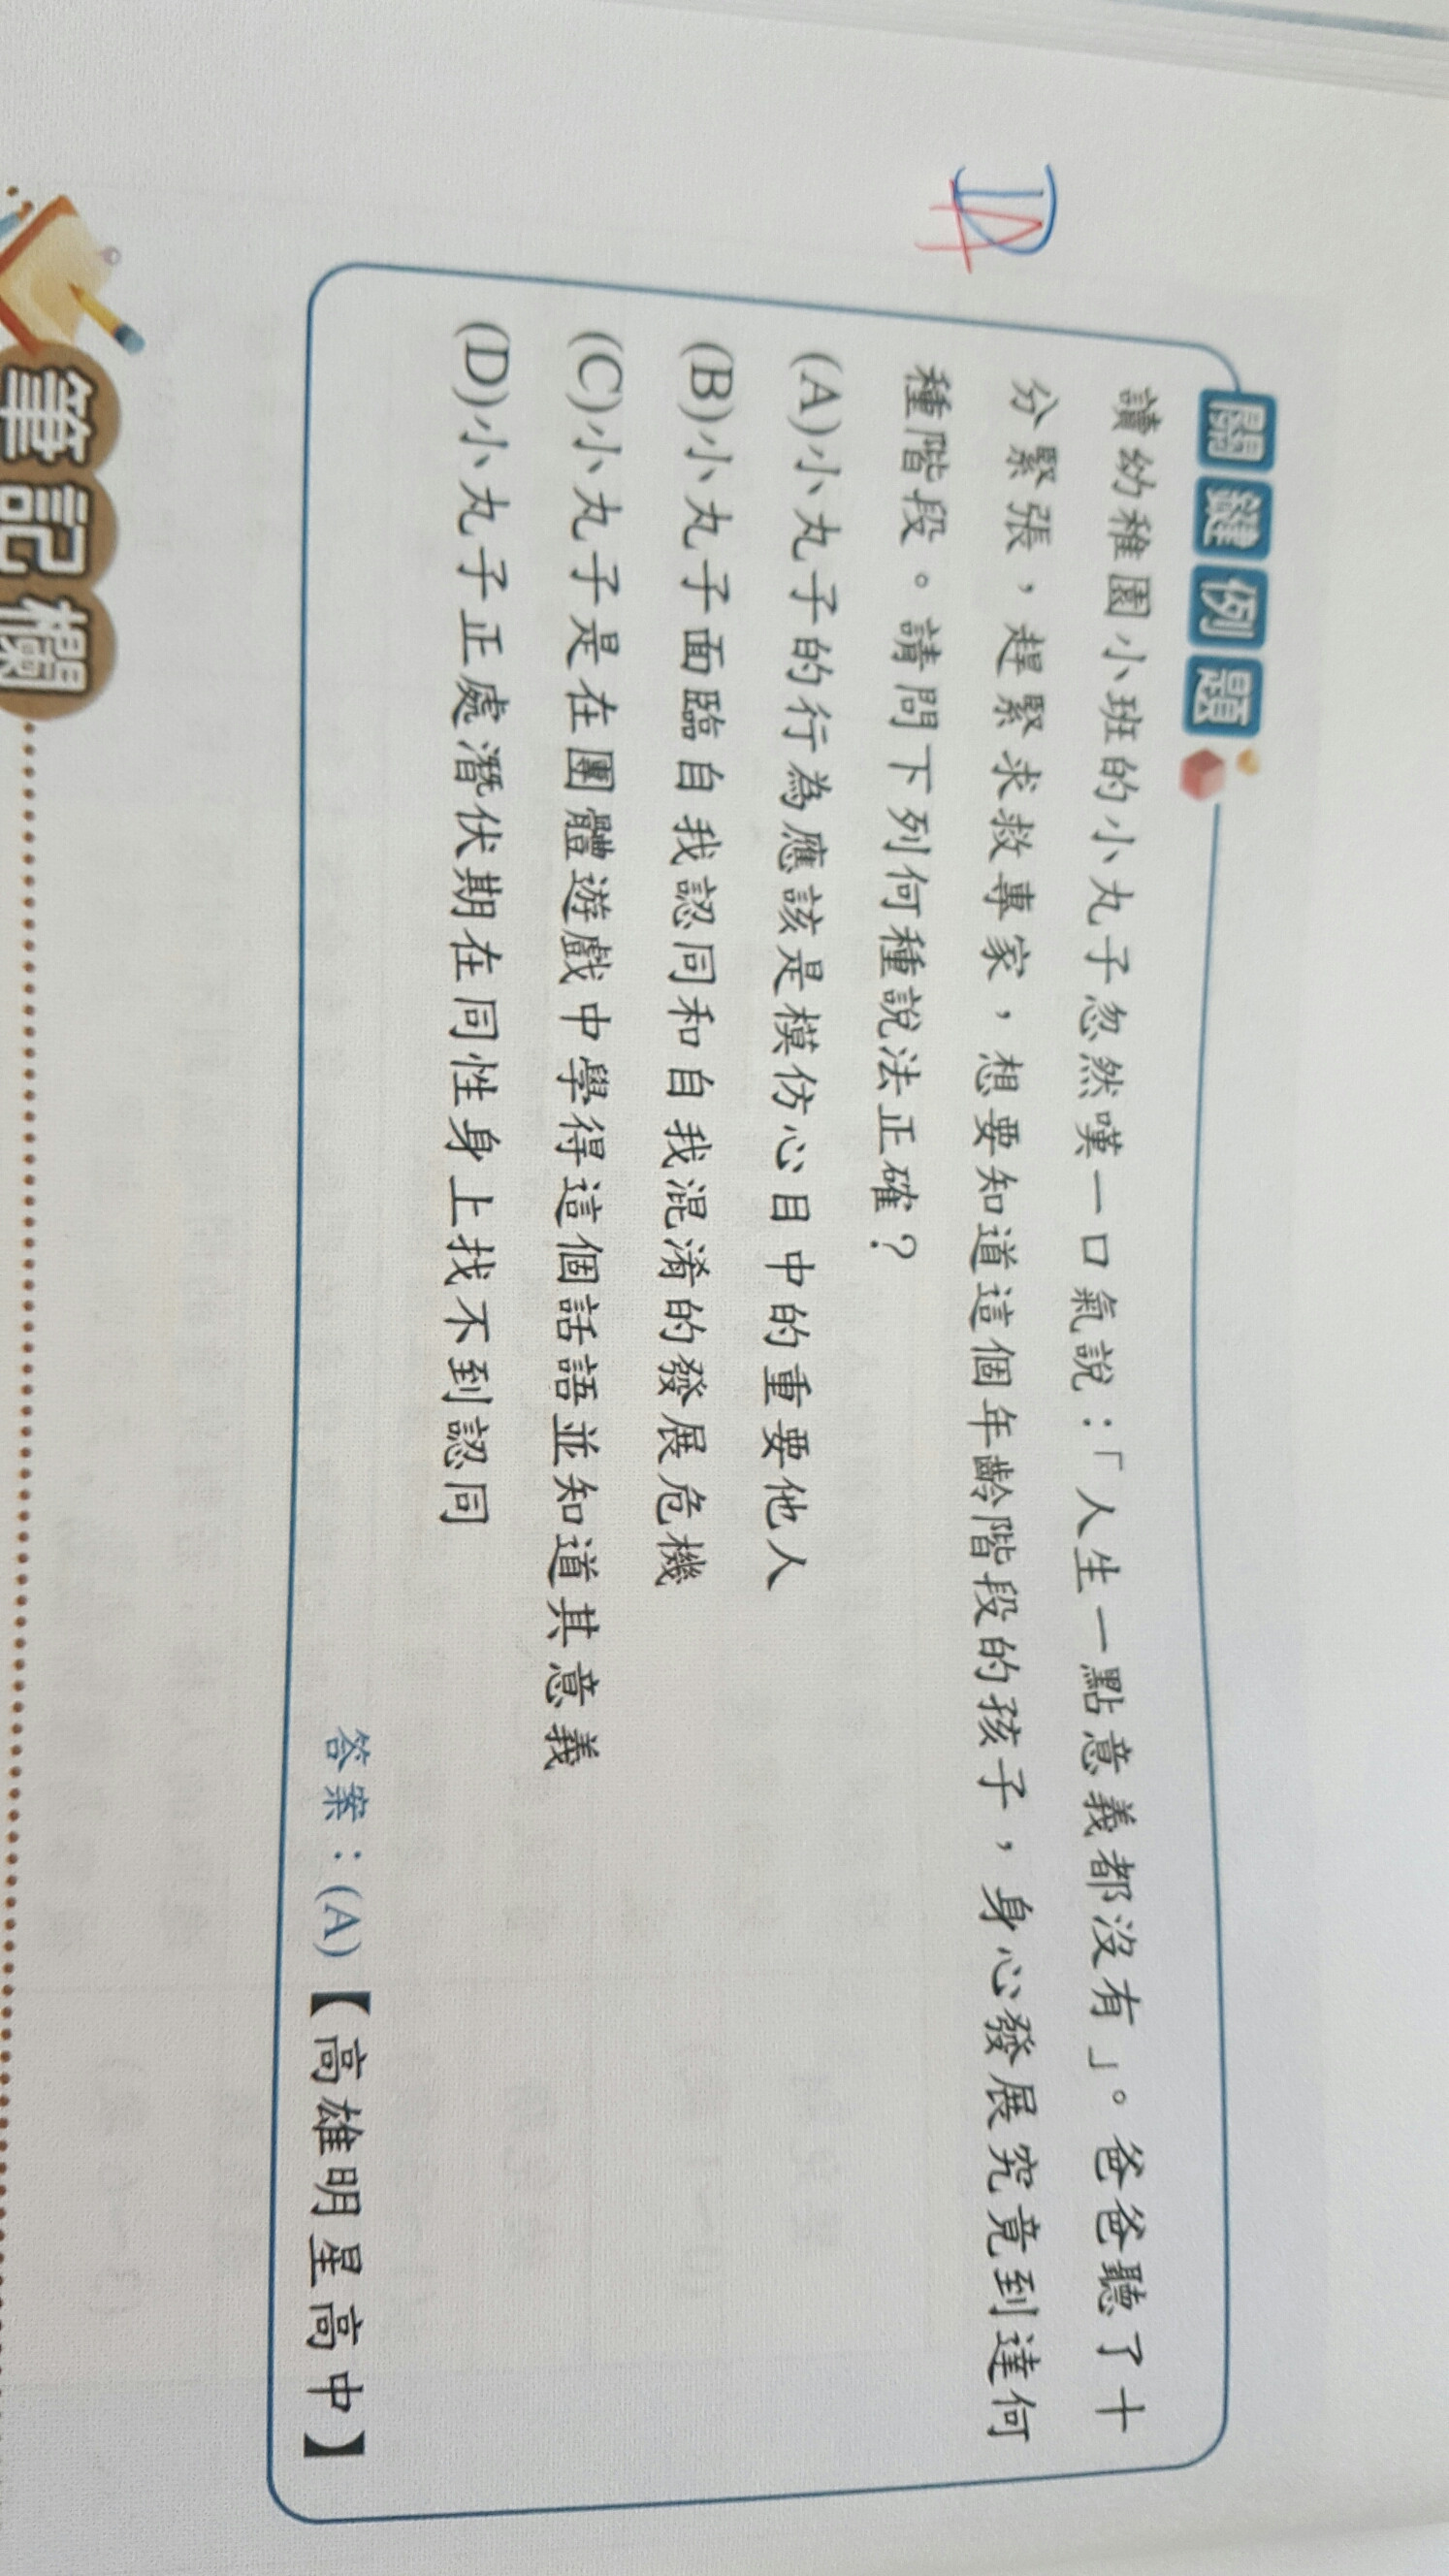 關鍵例題
讀幼稚園小班的小丸子忽然嘆一口氣說：「人生一點意義都沒有」。爸爸聽了十
分緊張，趕緊求救專家，想要知道這個年齡階段的孩子，身心發展究竟到達何
種階段。請問下列何種說法正確？
DA
(A)小丸子的行為應該是模仿心目中的重要他人
(B)小丸子面臨自我認同和自我混淆的發展危機
(C)小丸子是在團體遊戲中學得這個話語並知道其意義
(D)小丸子正處潛伏期在同性身上找不到認同
答案：(A)【高雄明星高中】
筆記欄